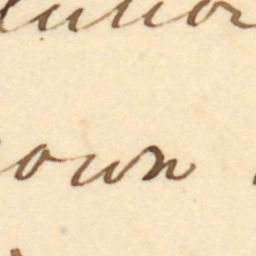 lution
own